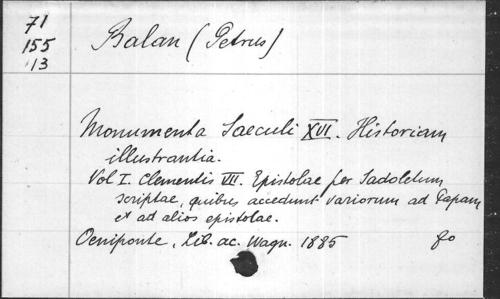 71
155
13
Balan (Petrus)
Monumenta Saeculi XVI. Historiam
illustrantia.
Vol I. Clementis VII. Epistolae per Sadoletum
scriptae, quibus accedunt variorum ad Papam
et ad alios epistolae.
Oeniponte, Lib. ac. Wagn. 1885 fo